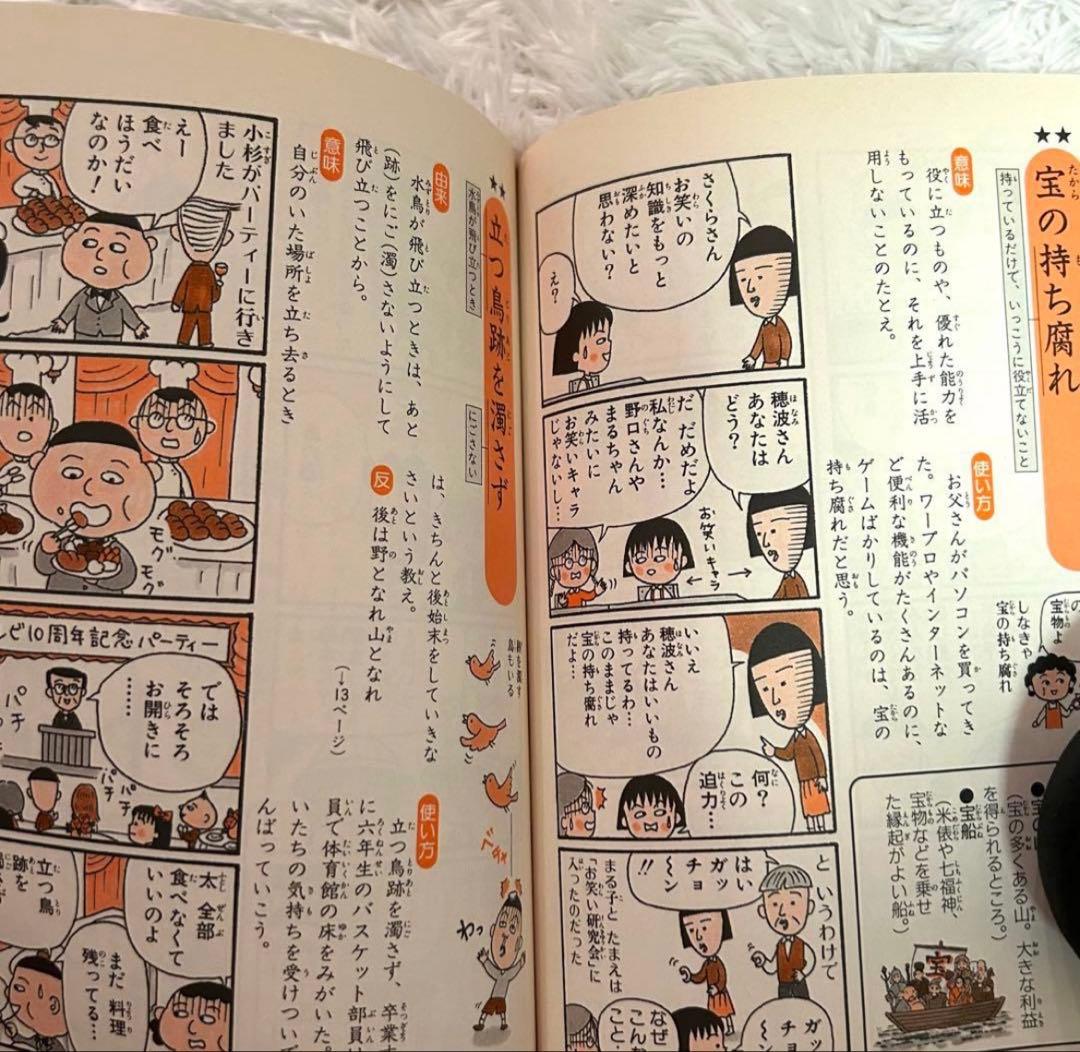 ★★
宝の持ち腐れ
持っているだけで、いっこうに役立てないこと
意味
役に立つものや、優れた能力を
もっているのに、それを上手に活
用しないことのたとえ。
使い方
お父さんがパソコンを買ってき
た。ワープロやインターネットな
ど便利な機能がたくさんあるのに、
ゲームばかりしているのは、宝の
持ち腐れだと思う。
宝物よ
しなきゃ
宝の持ち腐れ
(宝の多くある山。大きな利益
を得られるところ。)
●宝船
(米俵や七福神、
宝物などを乗せ
た縁起がよい船。)
宝
さくらさん
お笑いの
知識をもっと
深めたいと
思わない?
え?
穂波さん
あなたは
どう?
だだめだよ
私なんか…
野口さんや
まるちゃん
みたいに
お笑いキャラ
じゃないし…
お笑いキャラ
いいえ
穂波さん
あなたはいいもの
持ってるわ…
このままじゃ
宝の持ち腐れ
だよ…
何?
この
迫力…
というわけで
はい
!!
ガッ
チョ
〜ン
まる子と たまえは
「お笑い研究会」に
入ったのだった
ガッ
チョ
〜ン
なぜ
こんな
こと…
★★
立つ鳥跡を濁さず
水鳥が飛び立つとき
にごさない
由来
水鳥が飛び立つときは、あと
(跡)をにご(濁)さないようにして
飛び立つことから。
意味
自分のいた場所を立ち去るとき
は、きちんと後始末をしていきな
さいという教え。
反
後は野となれ山となれ
(→13ページ)
使い方
立つ鳥跡を濁さず、卒業す
に六年生のバスケット部員
員で体育館の床をみがいた。
いたちの気持ちを受けつい
んばっていこう。
鳥もいる
わっ
小杉がパーティーに行き
ました
えー
食べ
ほうだい
なのか!
モグ
モグ
レビ10周年記念パーティー
では
そろそろ
お開きに
……
パチ
パチ
パチ
太 全部
食べなくて
いいのよ
立つ鳥
跡を
まだ 料理
残ってる…